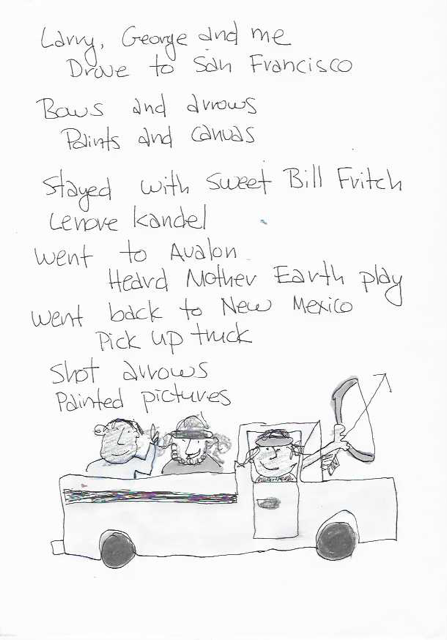 Larry, George and me
Drove to San Francisco
Bows and arrows
Paints and canvas
Stayed with Sweet Bill Fritch
Lenore Kandel
went to Avalon
Heard Mother Earth play
went back to New Mexico
Pick up truck
Shot arrows
Painted pictures